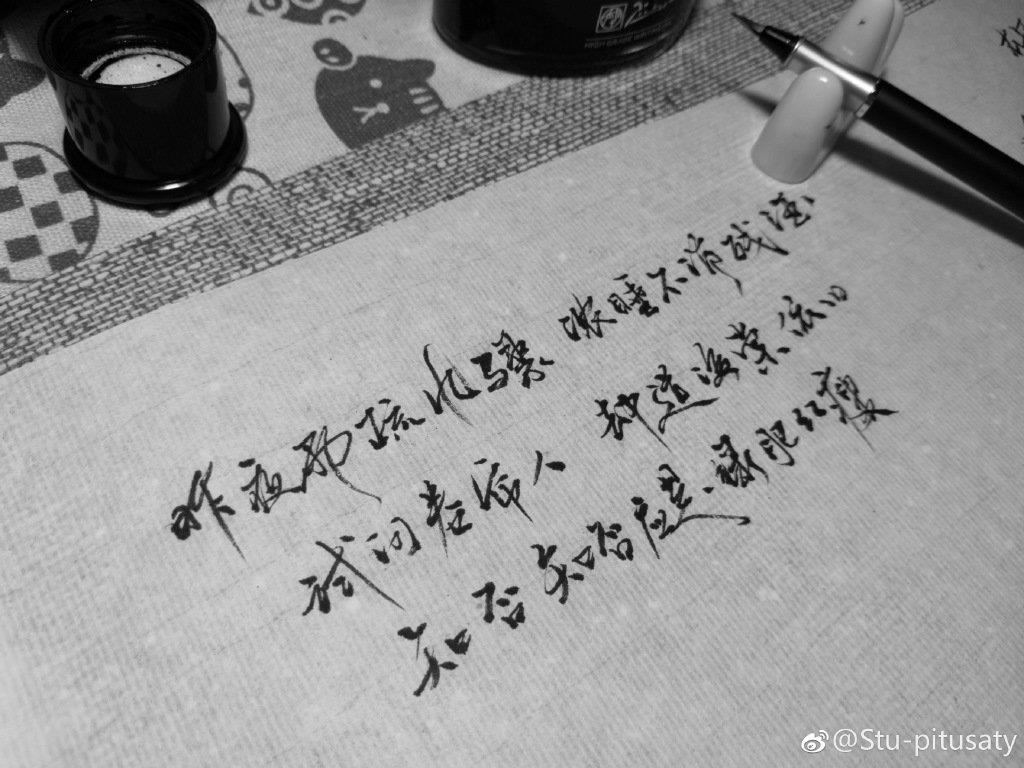 昨夜雨疏风骤 浓睡不消残酒
试问卷帘人 却道海棠依旧
知否 知否 应是绿肥红瘦
@Stu-pitusaty